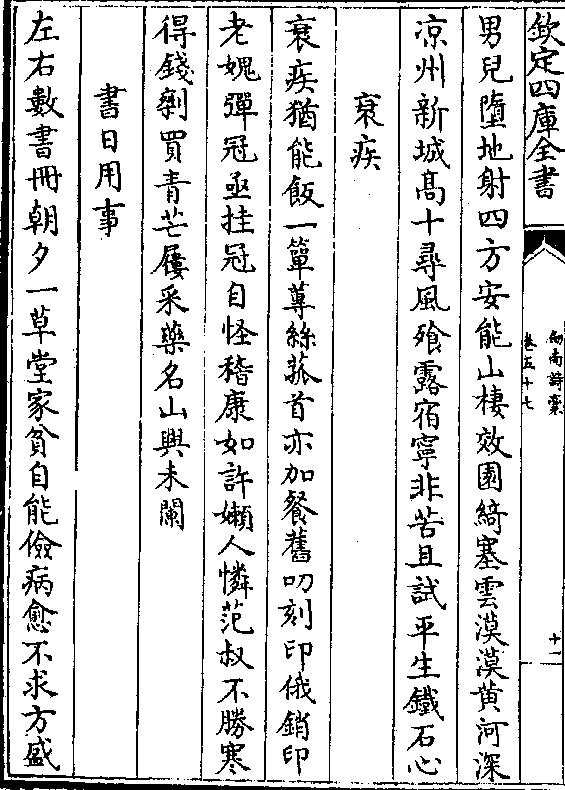 欽定四庫全書
劍南詩稾
卷五十七
十一
男兒墮地射四方安能山棲效園綺塞雲漠漠黄河深
凉州新城髙十尋風飱露宿寧非苦且試平生鐵石心
衰疾
衰疾猶能飯一簞蓴絲菰首亦加餐舊叨刻印俄銷印
老媿彈冠亟挂冠自怪稽康如許嬾人憐范叔不勝寒
得錢剰買青芒屨采藥名山興未闌
書日用事
左右數書冊朝夕一草堂家貧自能儉病愈不求方盛